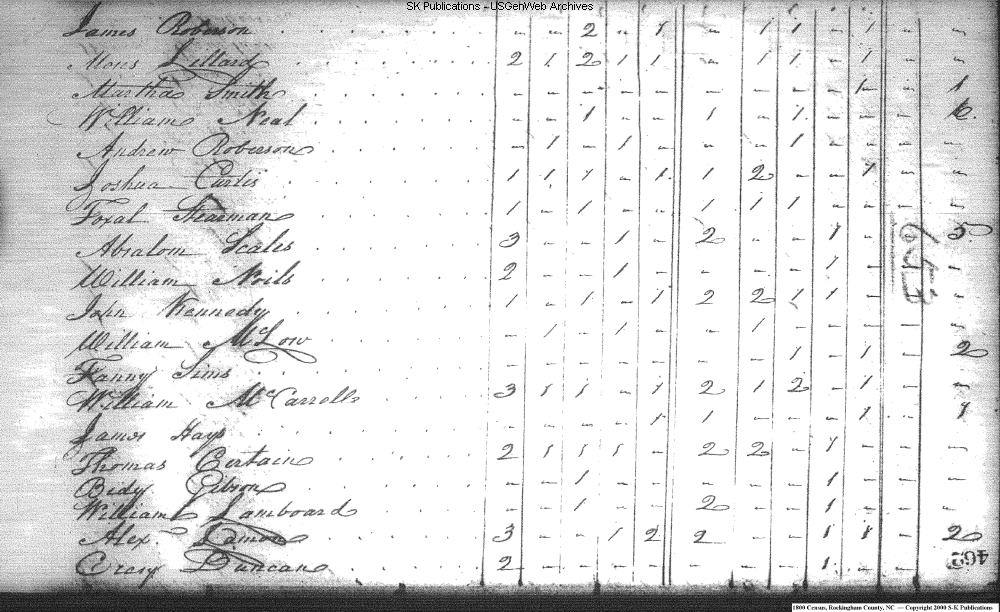 SK Publications - USGenWeb Archives
James Roberson - - 2 - 1 - 1 1 - 1 - -
Mons Lillard 2 1 2 1 1 - 1 1 - 1 - -
Martha Smith - - - - - - - - - 1 - 1
William Neal - - 1 - - 1 - 1 - - -
Andrew Roberson - 1 - 1 - - - 1 - - - -
Joshua Curtis 1 1 1 - 1 1 2 - - 1 - -
Foxal Stearman 1 - 1 - - 1 1 1 - - - -
Absalom Scales 3 - - 1 - 2 - - 1 - - 5
William Noils 2 - - 1 - - - - 1 - - 1
John Kennedy 1 - 1 - 1 2 2 1 1 - - -
William McLow - 1 - 1 - - 1 - - - - -
Fanny Sims - - - - - - - 1 - 1 - 2
William McCarrolls 3 1 1 - 1 2 1 2 - 1 - -
James Hays - - - - 1 1 - - - 1 - 1
Thomas Certain 2 1 1 1 - 2 2 - 1 - - -
Bidy Gibson - - 1 - - - - - 1 - - -
William Lamboard - - 1 - - 2 - - 1 - - -
Alex Lamon 3 - - 1 2 2 - - 1 1 - 2
Crecy Duncan 2 - - - - - - - 1 - - -
653
1800 Census, Rockingham County, NC — Copyright 2000 S-K Publications